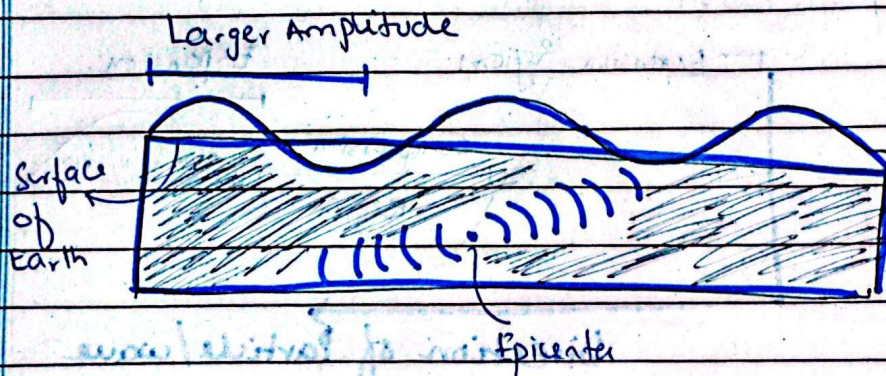 Larger Amplitude
Surface
of
Earth
Epicenter